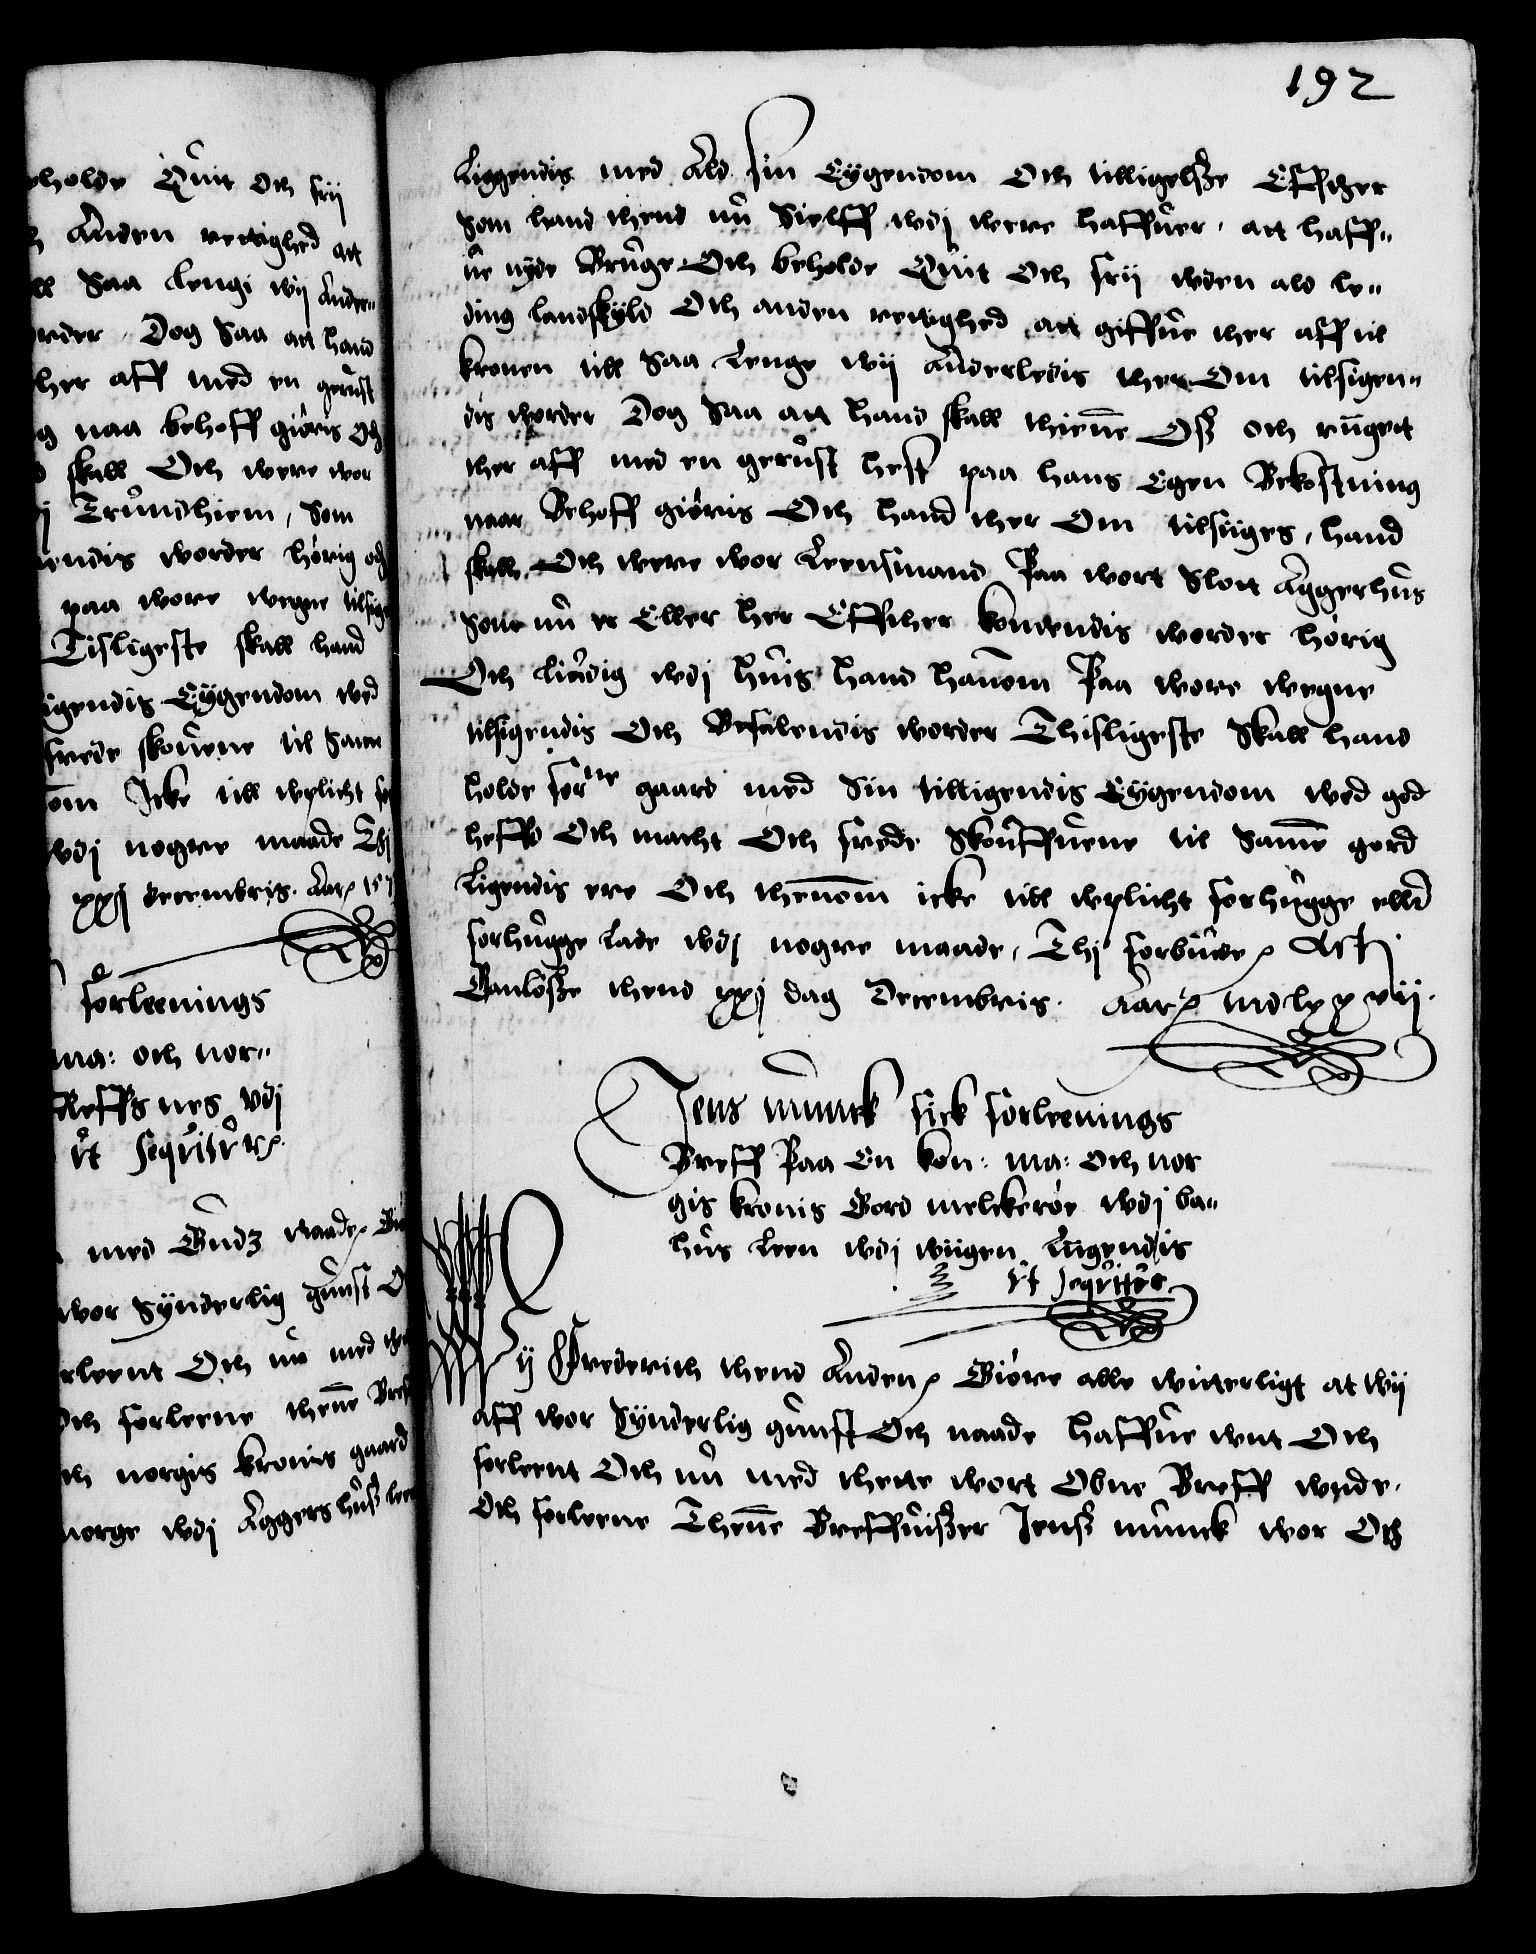 192
Liggendis med Ald sin Eygendom Och tilligelsze Effther
som hand thend nu Sielff wdj were haffuer, att haff„
ue nyde Bruge Och beholde Quit Och frij wden ald le„
ding landskyld Och anden rettighed att giffue ther aff til
kronen till Saa Lenge wij Anderledis ther Om tilsigen„
dis worder Dog Saa att Hand skall thiene Osz och rungett
ther aff med en gerust hest paa hans Egen Bekostning
naar Behoff giøris Och Hand ther Om tilsiiges, hand
skall Och were wor Leensmand Paa wort Slott Aggerhus
Som nu er Eller her Effther komendis worder hørig
Och liudig wdj huis Hand Hanom Paa wore wegne
tilsigendis Och Befalendis worder Thisligeste Skall hand
holde for:ne gaard med Sin tilligendis Eygendom wed god
heffd Och macht Och frede Skouffuene til Same gord
Ligendis ere Och thenom icke till wplicht forhugge eller
forhugge Lade wdj nogre maade, Thj forbiude Act
Ganløsze thend xxj dag Decembris. Aar mdlxxvij.
Jens munck fick forleenings
Breff Paa En kon: ma: och nor
gis kronis Gord melckerøe wdj ba„
hus Leen wdj wiigen Liigendis
vt sequittur
Wij Frederich thend Anden Giøre alle witterligt at wij
aff wor Synderlig gunst Och naade Haffue wnt Och
forlent Och nu med thette wort Obne Breff wnde.
Och forleene Thene Breffuiszer Jensz munck wor Och
eholde Quit Och frij
h Anden rettighed att
ll Saa Lengi wij Ander„
order, Dog Saa att Hand
ther aff med en gerust
g naa behoff giøris Och
d skall Och were wor
j Trundhiem, Som
endis worder hørig och
paa wore wegne tilsige
Tisligeste skall hand
igendis Eygendom wed
frede skouene til Same
om Icke till wplicht fo
wdj nogre maade Thj
xxj decembris. Aar 157
forleenings
ma: och nor„
Reffsnes vdj
vt sequitur
med Gudz naade
wor Synderlig gunst O
rleent Och nu med the
Och forleene thene Breff
ch norgis kronis gaard
norge wdj Aggershusz leen